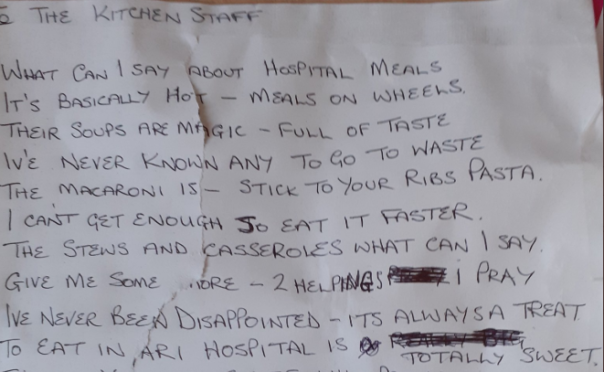 THE KITCHEN STAFF
WHAT CAN I SAY ABOUT HOSPITAL MEALS
IT'S BASICALLY HOT - MEALS ON WHEELS.
THEIR SOUPS ARE MAGIC - FULL OF TASTE
IV'E NEVER KNOWN ANY TO GO TO WASTE
THE MACARONI IS - STICK TO YOUR RIBS PASTA.
I CAN'T GET ENOUGH SO EAT IT FASTER.
THE STEWS AND CASSEROLES WHAT CAN I SAY.
GIVE ME SOME MORE - 2 HELPINGS I PRAY
IVE NEVER BEEN DISAPPOINTED - ITS ALWAYS A TREAT
TO EAT IN ARI HOSPITAL IS
TOTALLY SWEET.